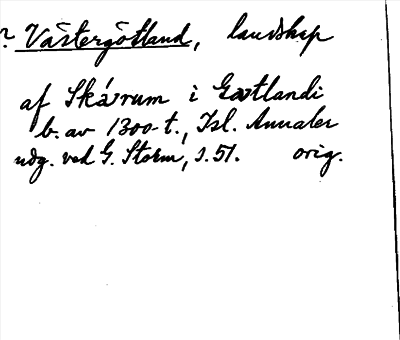 ? Västergötland, landskap
af Skárum i Gavtlandi
b. av 1300-t., Isl. Annaler
udg. ved G. Storm, s. 51. orig.